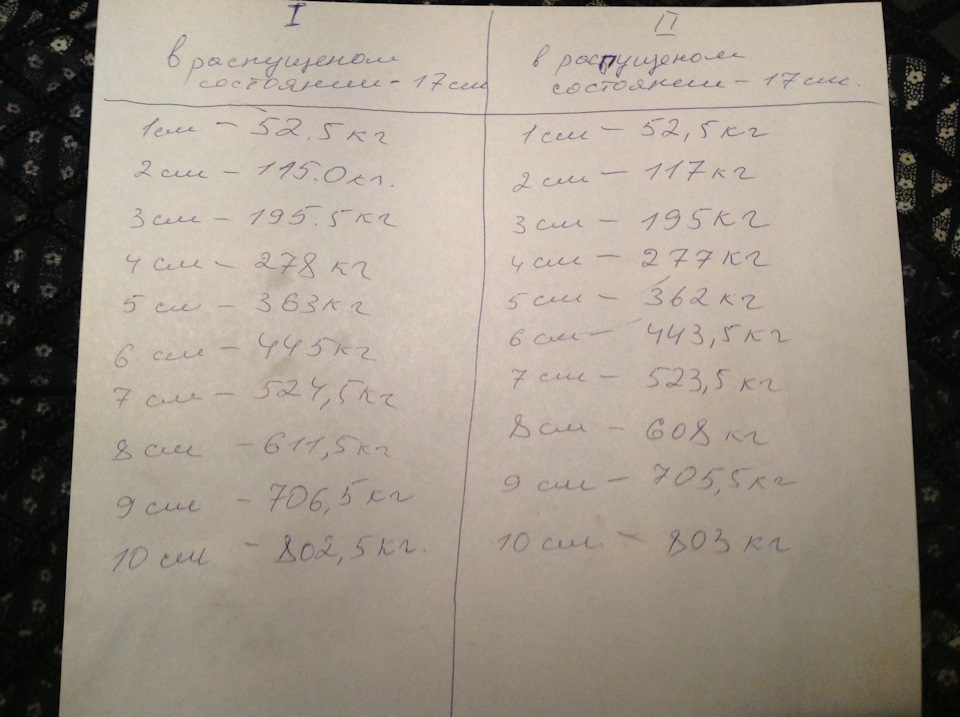 I
в распущеном
состоянии - 17 см
1 см - 52.5 кг
2 см - 115.0 кг.
3 см - 195.5 кг
4 см - 278 кг
5 см - 363 кг
6 см - 445 кг
7 см - 524,5 кг
8 см - 611,5 кг
9 см - 706,5 кг
10 см - 802,5 кг.
II
в распущеном
состоянии - 17 см.
1 см - 52,5 кг
2 см - 117 кг
3 см - 195 кг
4 см - 277 кг
5 см - 362 кг
6 см - 443,5 кг
7 см - 523,5 кг
8 см - 608 кг
9 см - 705,5 кг
10 см - 803 кг